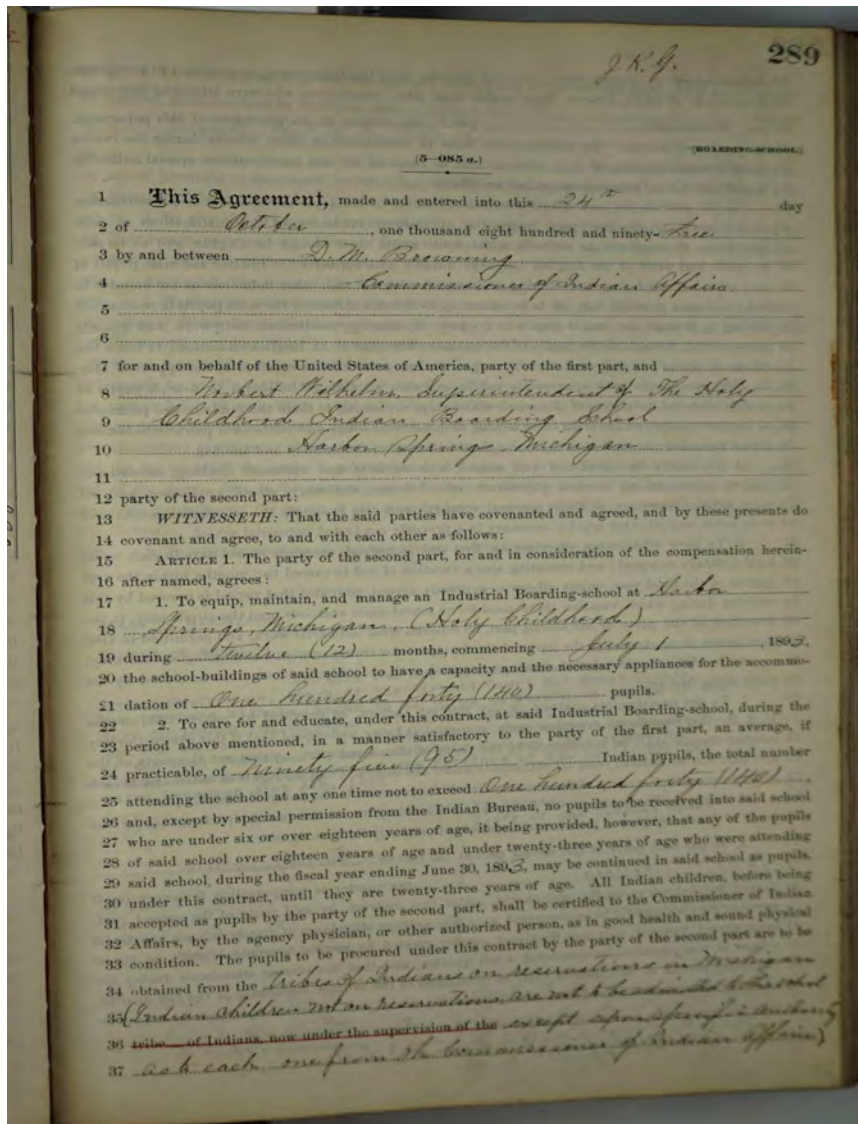 289
J. K. G.
[BOARDING-SCHOOL.]
(5—085 a.)
1 This Agreement, made and entered into this 24th day
2 of October, one thousand eight hundred and ninety-three
3 by and between D. M. Browning
4 Commissioner of Indian Affairs
5
6
7 for and on behalf of the United States of America, party of the first part, and
8 Norbert Wilhelm Superintendent of The Holy
9 Childhood Indian Boarding School
10 Harbor Springs, Michigan
11
12 party of the second part:
13 WITNESSETH: That the said parties have covenanted and agreed, and by these presents do
14 covenant and agree, to and with each other as follows:
15 ARTICLE 1. The party of the second part, for and in consideration of the compensation herein-
16 after named, agrees:
17 1. To equip, maintain, and manage an Industrial Boarding-school at Harbor
18 Springs, Michigan, (Holy Childhood)
19 during twelve (12) months, commencing July 1, 1893,
20 the school-buildings of said school to have a capacity and the necessary appliances for the accommo-
21 dation of One hundred forty (140) pupils.
22 2. To care for and educate, under this contract, at said Industrial Boarding-school, during the
23 period above mentioned, in a manner satisfactory to the party of the first part, an average, if
24 practicable, of Ninety five (95) Indian pupils, the total number
25 attending the school at any one time not to exceed One hundred forty (140)
26 and, except by special permission from the Indian Bureau, no pupils to be received into said school
27 who are under six or over eighteen years of age, it being provided, however, that any of the pupils
28 of said school over eighteen years of age and under twenty-three years of age who were attending
29 said school, during the fiscal year ending June 30, 1893, may be continued in said school as pupils,
30 under this contract, until they are twenty-three years of age. All Indian children, before being
31 accepted as pupils by the party of the second part, shall be certified to the Commissioner of Indian
32 Affairs, by the agency physician, or other authorized person, as in good health and sound physical
33 condition. The pupils to be procured under this contract by the party of the second part are to be
34 obtained from the tribes of Indians on reservations in Michigan
35 (Indian children not on reservations are not to be admitted to the school
36 tribe of Indians, now under the supervision of the except upon specific authority
37 as to each one from the Commissioner of Indian Affairs)